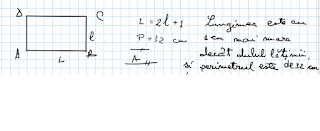 D C
L = 2l + 1
Lungimea este cu
P = 32 cm
1 cu mai mare
l
A
decât dublul lățimii
A B
și perimetrul este de 32 cm
L